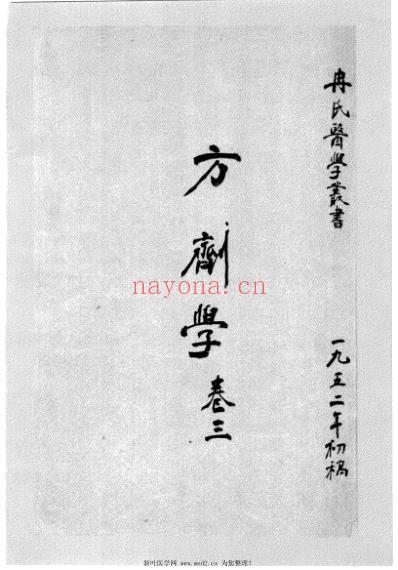 冉氏醫學叢書
一九五二年初稿
方劑學
卷三
nayona.cn
新叶医学网 www.med2.cn 为您整理！